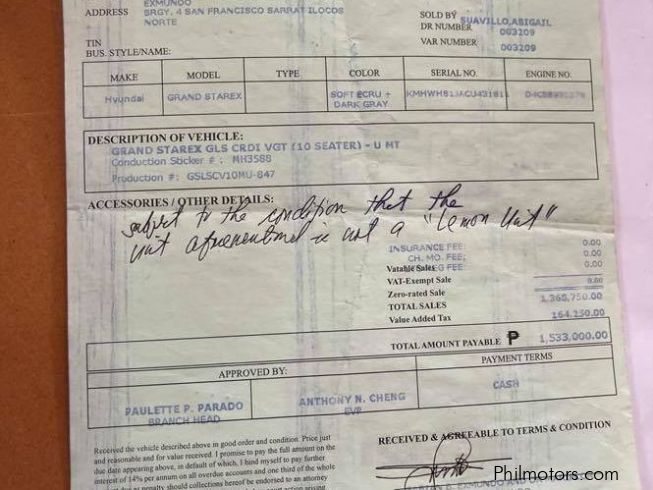 EXMUNDO
ADDRESS BRGY. 4 SAN FRANCISCO SARRAT ILOCOS
NORTE
SOLD BY SUAVILLO, ABIGAIL
DR NUMBER 003209
VAR NUMBER 003209
TIN
BUS. STYLE/NAME:
MAKE MODEL TYPE COLOR SERIAL NO. ENGINE NO.
Hyundai GRAND STAREX SOFT ECRU +
DARK GRAY
DESCRIPTION OF VEHICLE:
GRAND STAREX GLS CRDI VGT (10 SEATER) - U MT
Conduction Sticker # : MH3588
Production #: GSLSCV10MU-847
ACCESSORIES / OTHER DETAILS:
subject to the condition that the
unit aforementioned is not a "Lemon Unit"
INSURANCE FEE: 0.00
CH. MO. FEE: 0.00
Vatable Sales FEE: 0.00
VAT-Exempt Sale 0.00
Zero-rated Sale
TOTAL SALES 1,368,750.00
Value Added Tax 164,250.00
TOTAL AMOUNT PAYABLE ₱ 1,533,000.00
APPROVED BY: PAYMENT TERMS
PAULETTE P. PARADO
BRANCH HEAD
ANTHONY N. CHENG
EVP
CASH
Received the vehicle described above in good order and condition. Price just
and reasonable and for value received. I promise to pay the full amount on the
due date appearing above, in default of which, I bind myself to pay further
interest of 14% per annum on all overdue accounts and one third of the whole
penalty should collections hereof be endorsed to an attorney
RECEIVED & AGREEABLE TO TERMS & CONDITION
EXMUNDO
Philmotors.com